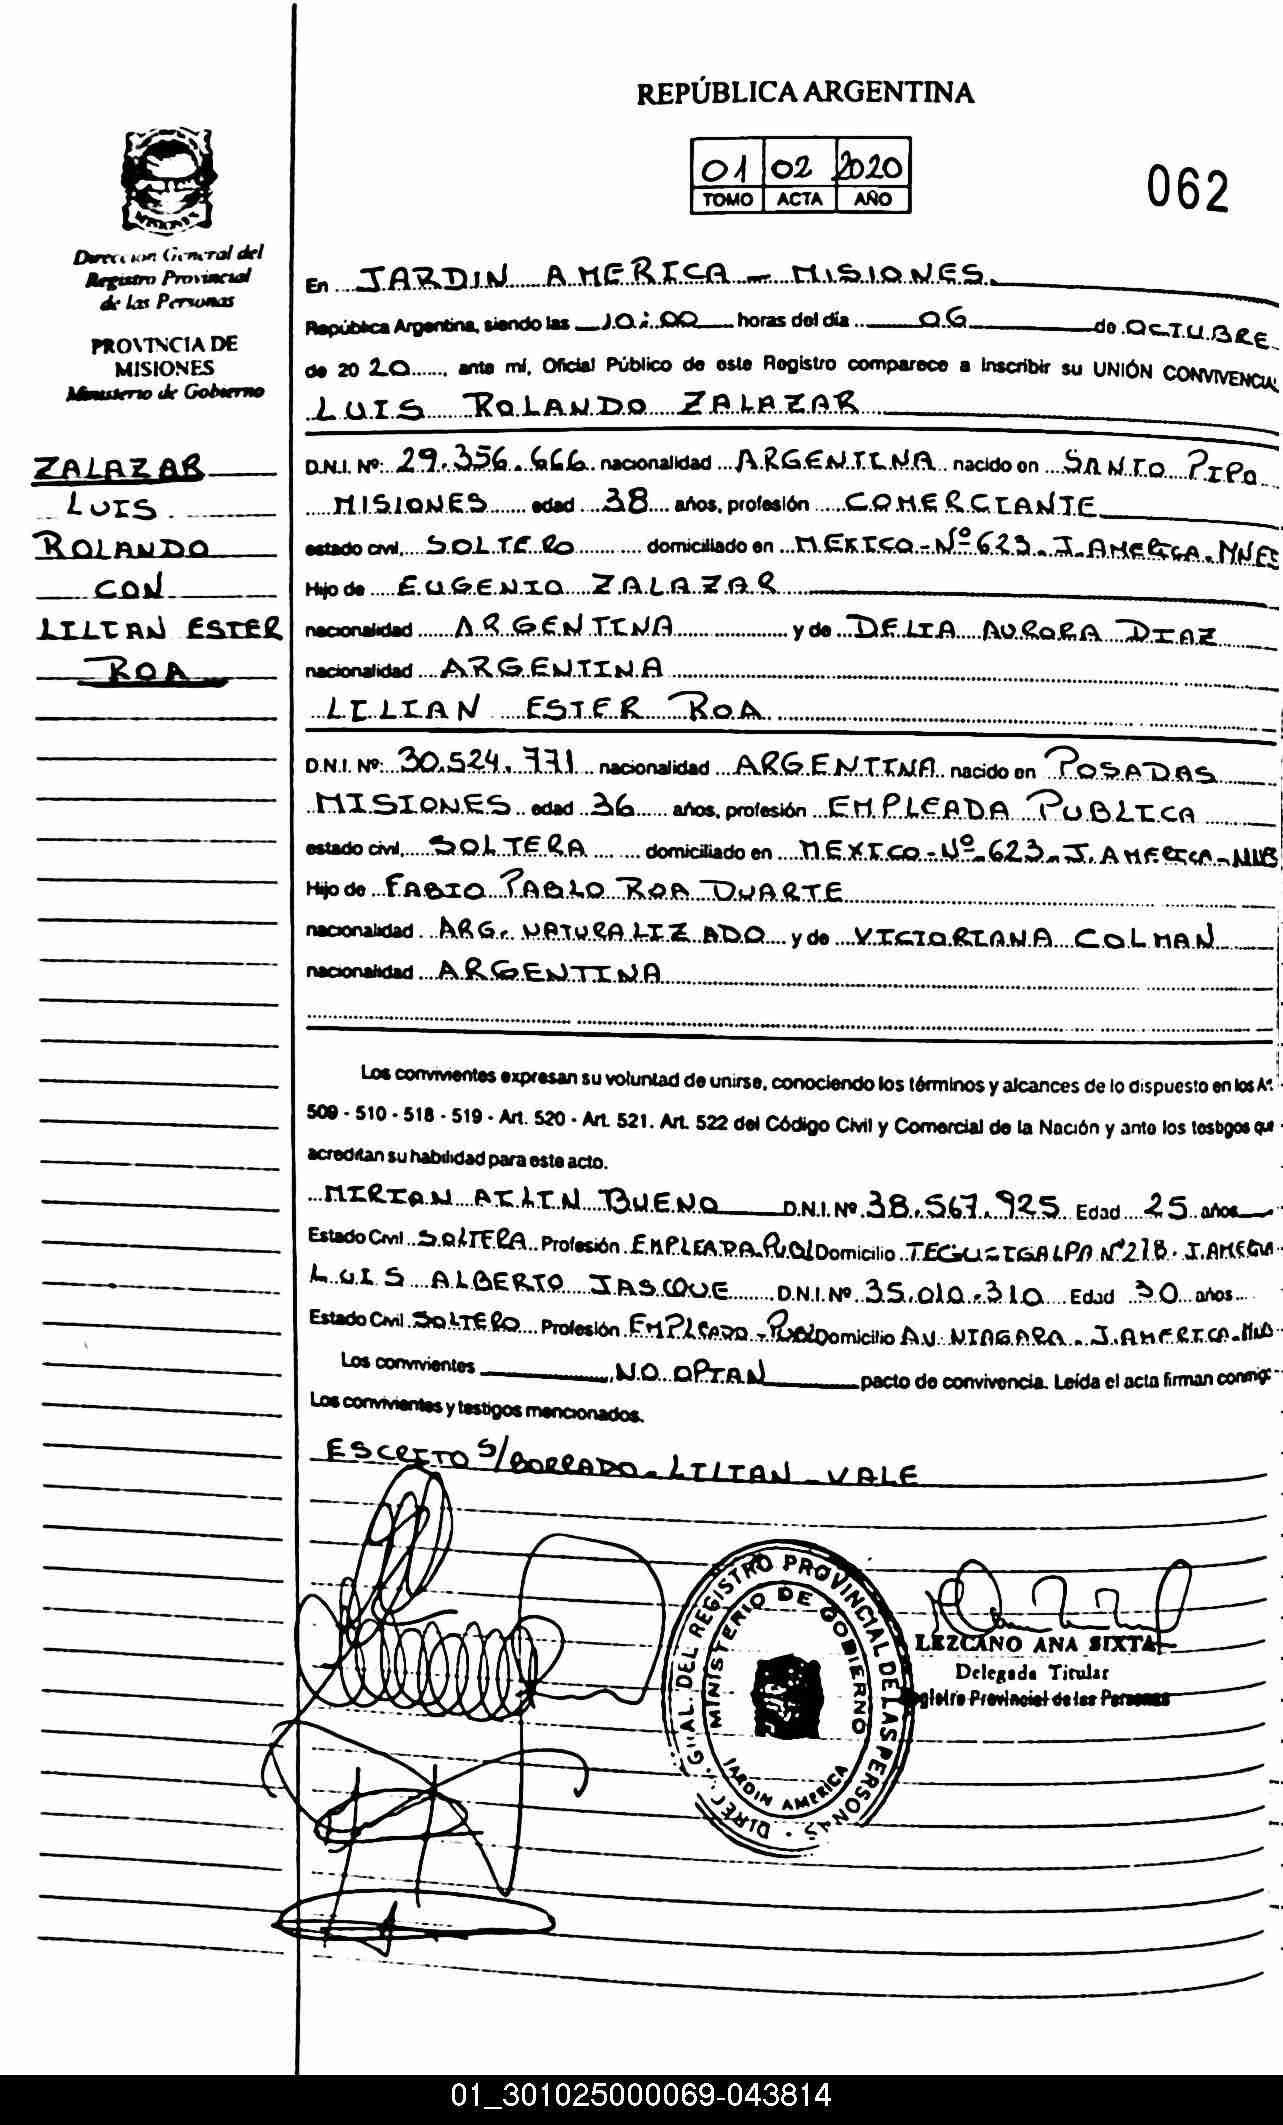 REPÚBLICA ARGENTINA
01 02 2020
TOMO ACTA AÑO
062
Dirección General del
Registro Provincial
de las Personas
PROVINCIA DE
MISIONES
Ministerio de Gobierno
ZALAZAR
LUIS
ROLANDO
CON
LILIAN ESTER
ROA
En JARDIN AMERICA - MISIONES.
República Argentina, siendo las 10:00 horas del día 06 de OCTUBRE
de 20 20, ante mí, Oficial Público de este Registro comparece a inscribir su UNIÓN CONVIVENCIAL
LUIS ROLANDO ZALAZAR
D.N.I. Nº: 29.356.666 nacionalidad ARGENTINA nacido en SANTO PIPO
MISIONES edad 38 años, profesión COMERCIANTE
estado civil, SOLTERO domiciliado en MEXICO - Nº 623. J. AMERICA. MNES
Hijo de EUGENIO ZALAZAR
nacionalidad ARGENTINA y de DELIA AURORA DIAZ
nacionalidad ARGENTINA
LILIAN ESTER ROA
D.N.I. Nº: 30.524.771 nacionalidad ARGENTINA nacido en POSADAS
MISIONES edad 36 años, profesión EMPLEADA PUBLICA
estado civil, SOLTERA domiciliado en MEXICO - Nº 623. J. AMERICA -
Hijo de FABIO PABLO ROA DUARTE
nacionalidad ARG. NATURALIZADO y de VICTORIANA COLMAN
nacionalidad ARGENTINA
Los convivientes expresan su voluntad de unirse, conociendo los términos y alcances de lo dispuesto en los
509 - 510 - 518 - 519 - Art. 520 - Art. 521. Art. 522 del Código Civil y Comercial de la Nación y ante los testigos que
acreditan su habilidad para este acto.
MIRIAN AILIN BUENO D.N.I. Nº 38.567.925 Edad 25 años
Estado Civil SOLTERA Profesión EMPLEADA Publ Domicilio TEGUCIGALPA Nº 278. J. AMERICA
LUIS ALBERTO JASQUE D.N.I. Nº 35.010.310 Edad 30 años
Estado Civil SOLTERO Profesión EMPLEADO - Publ Domicilio AV. NIAGARA - J. AMERICA.
Los convivientes NO OPTAN pacto de convivencia. Leída el acta firman
Los convivientes y testigos mencionados.
ESCRITO S/BORRADO - LILIAN - VALE
GRAL. DEL REGISTRO PROVINCIAL DE LAS PERSONAS
MINISTERIO DE GOBIERNO
JARDIN AMERICA
LEZCANO ANA SIXTA
Delegada Titular
Registro Provincial de las Personas
01_301025000069-043814